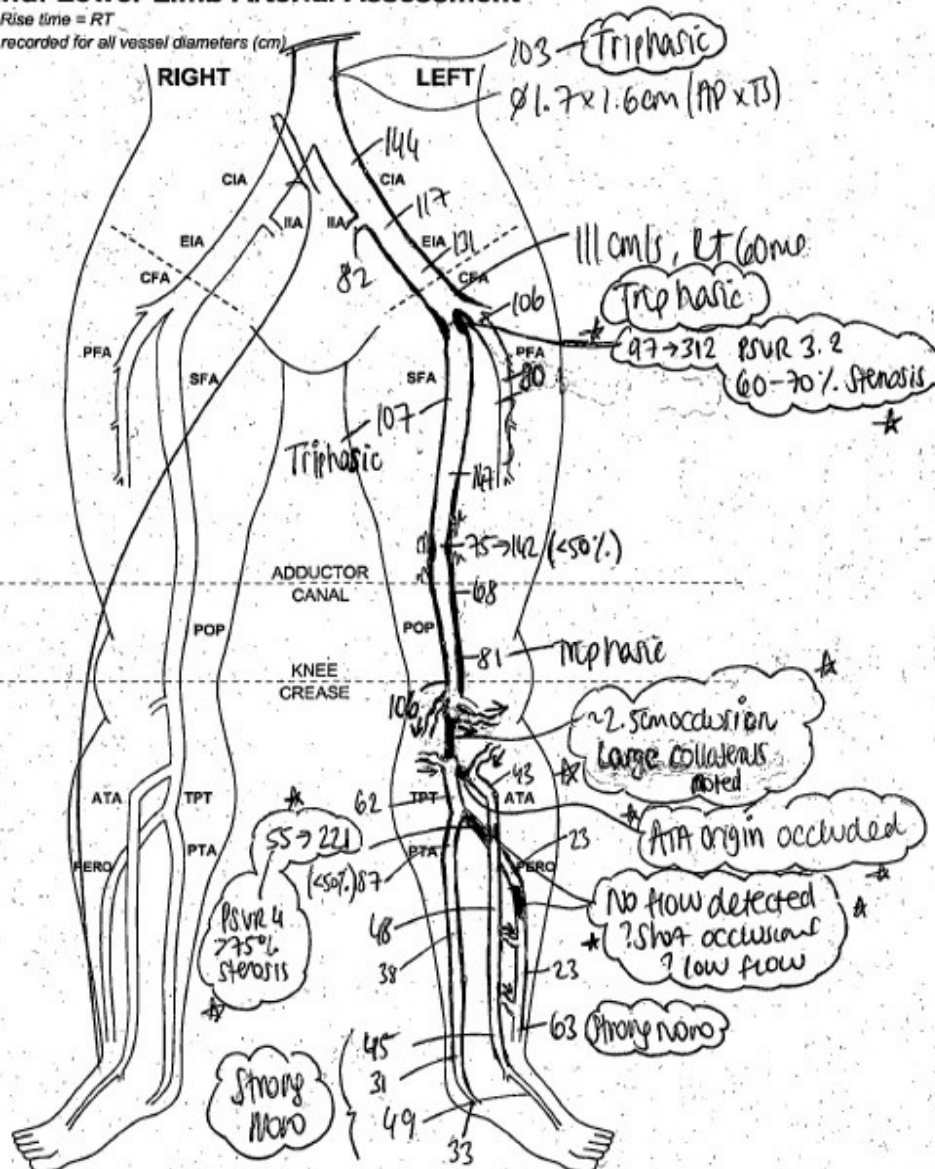 Lower Limb Arterial Assessment
Rise time = RT
recorded for all vessel diameters (cm)
RIGHT
LEFT
103 - Triphasic
Ø1.7x1.6cm (AP x TS)
144
CIA
CIA
117
IIA
IIA
EIA
EIA
131
82
CFA
CFA
111 cm/s, RT 60ms
Triphasic
106
PFA
PFA
97→312 PSVR 3.2
60-70% stenosis
80
SFA
SFA
107
Triphasic
147
75→142 (<50%)
ADDUCTOR
CANAL
68
POP
POP
81 - Triphasic
KNEE
CREASE
106
~2.5cm occlusion
Large collaterals
noted
43
ATA
TPT
62
TPT
ATA
ATA origin occluded
55→221
PERO
PTA
(<50%) 87
PTA
PERO
23
PSVR 4
>75%
stenosis
No flow detected
? Short occlusions
? low flow
48
38
23
63 Strong mono
45
31
Strong
mono
49
33